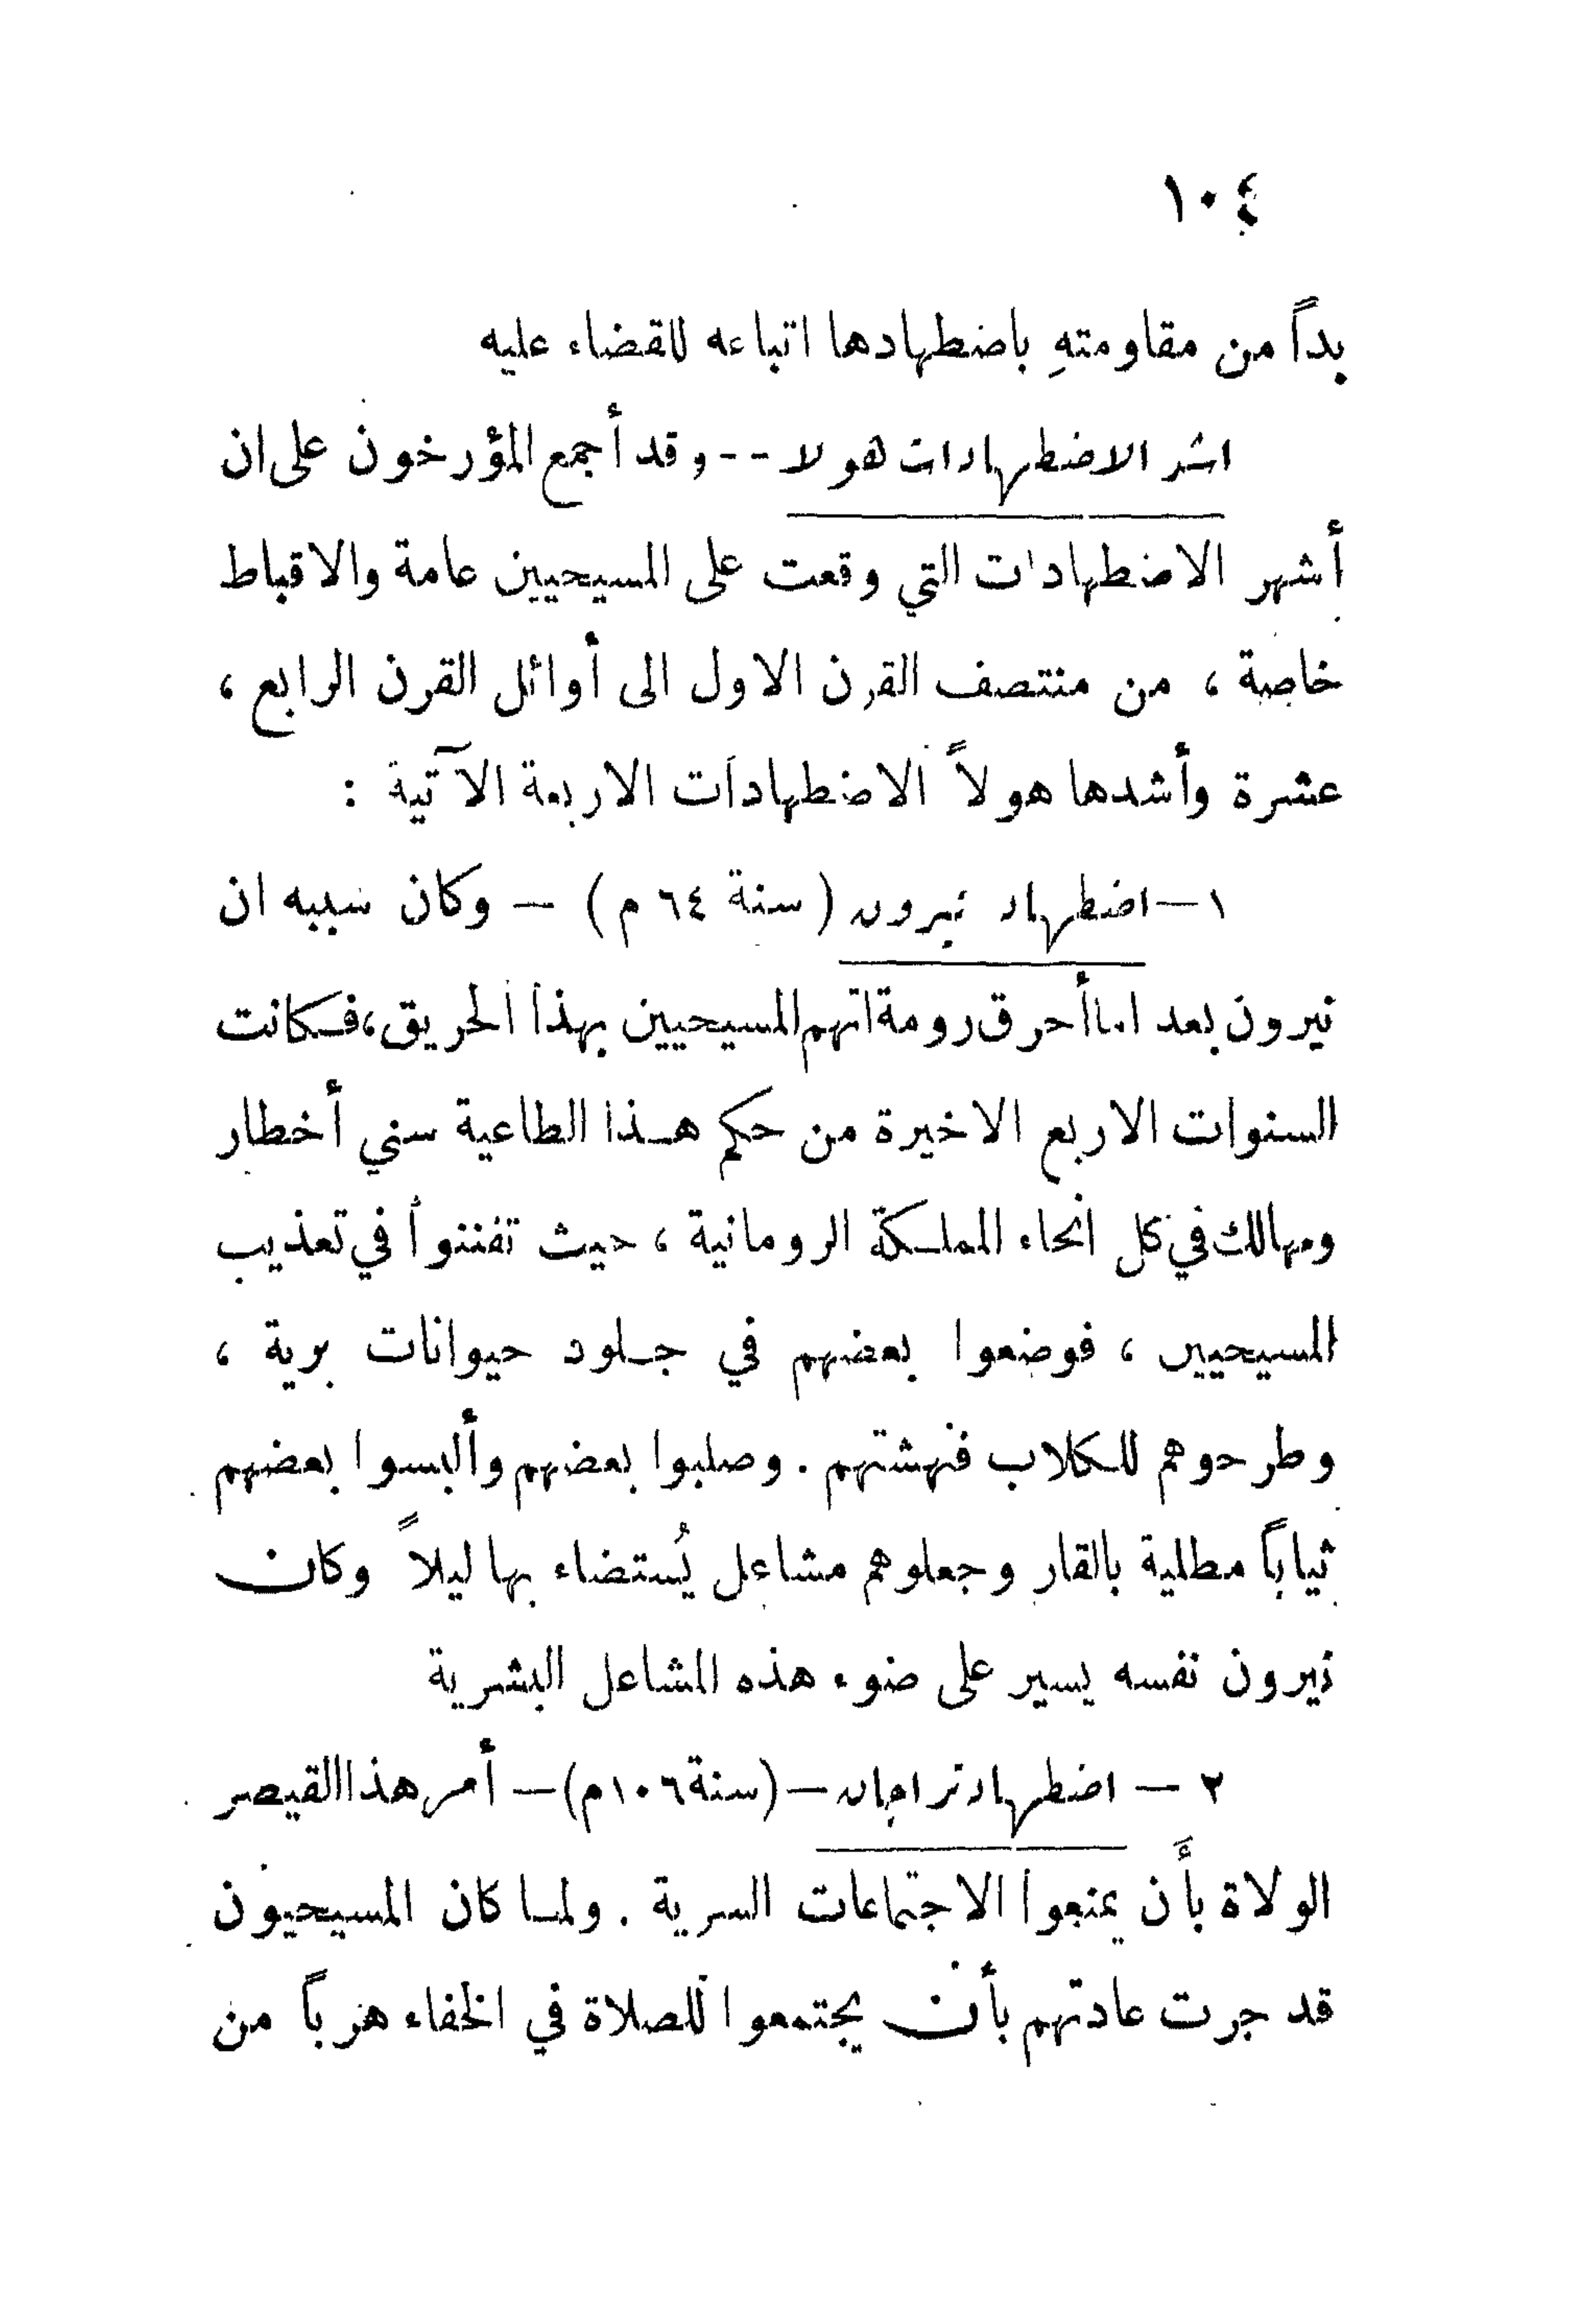 ١٠٤
بداً من مقاومتهِ باضطهادها اتباعه للقضاء عليه
اشد الاضطهادات هولا -- وقد أجمع المؤرخون على ان
أشهر الاضطهادات التي وقعت على المسيحيين عامة والاقباط
خاصة ، من منتصف القرن الاول الى أوائل القرن الرابع ،
عشرة وأشدها هولاً الاضطهادات الاربعة الآتية :
١ — اضطهاد نيرون (سنة ٦٤ م) — وكان سببه ان
نيرون بعد اما أحرق رومة اتهم المسيحيين بهذا الحريق ، فكانت
السنوات الاربع الاخيرة من حكم هذا الطاعية سني أخطار
ومهالك في كل انحاء المملكة الرومانية ، حيث تفننوا في تعذيب
المسيحيين ، فوضعوا بعضهم في جلود حيوانات برية ،
وطرحوهم للكلاب فنهشتهم . وصلبوا بعضهم وألبسوا بعضهم
ثياباً مطلية بالقار وجعلوهم مشاعل يُستضاء بها ليلاً وكان
نيرون نفسه يسير على ضوء هذه المشاعل البشرية
٢ — اضطهاد تراجان — (سنة ١٠٦م) — أمر هذا القيصر
الولاة بأَن يمنعوا الاجتماعات السرية . ولما كان المسيحيون
قد جرت عادتهم بأن يجتمعوا للصلاة في الخفاء هرباً من